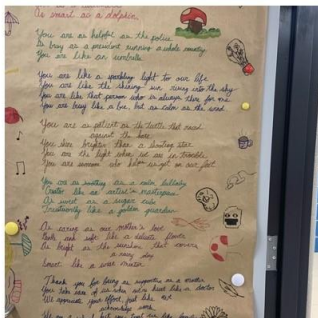 As smart as a dolphin.
You are as helpful as the police
As busy as a president running a whole country
You are like an umbrella.
You are like a sparkling light to our life
You are like the shining sun rising into the sky
You are like that person who is always there for me
You are busy like a bee, but as calm as the wind
You are as patient as the turtle that raced
against the hare
You shine brighter than a shooting star
You are the light when we are in trouble
You are someone who helps us get on our feet
You are as soothing as a calm lullaby
like an artist's masterpiece
As sweet as a sugar cube
Trustworthy like a golden guardian
As caring as our mother's love
Both and soft like a delicate flower
As bright as the sunshine that covers
a rainy day
Thank you for being as supportive as a mother
You take care of us when we're hurt like a doctor
We appreciate your effort, just like